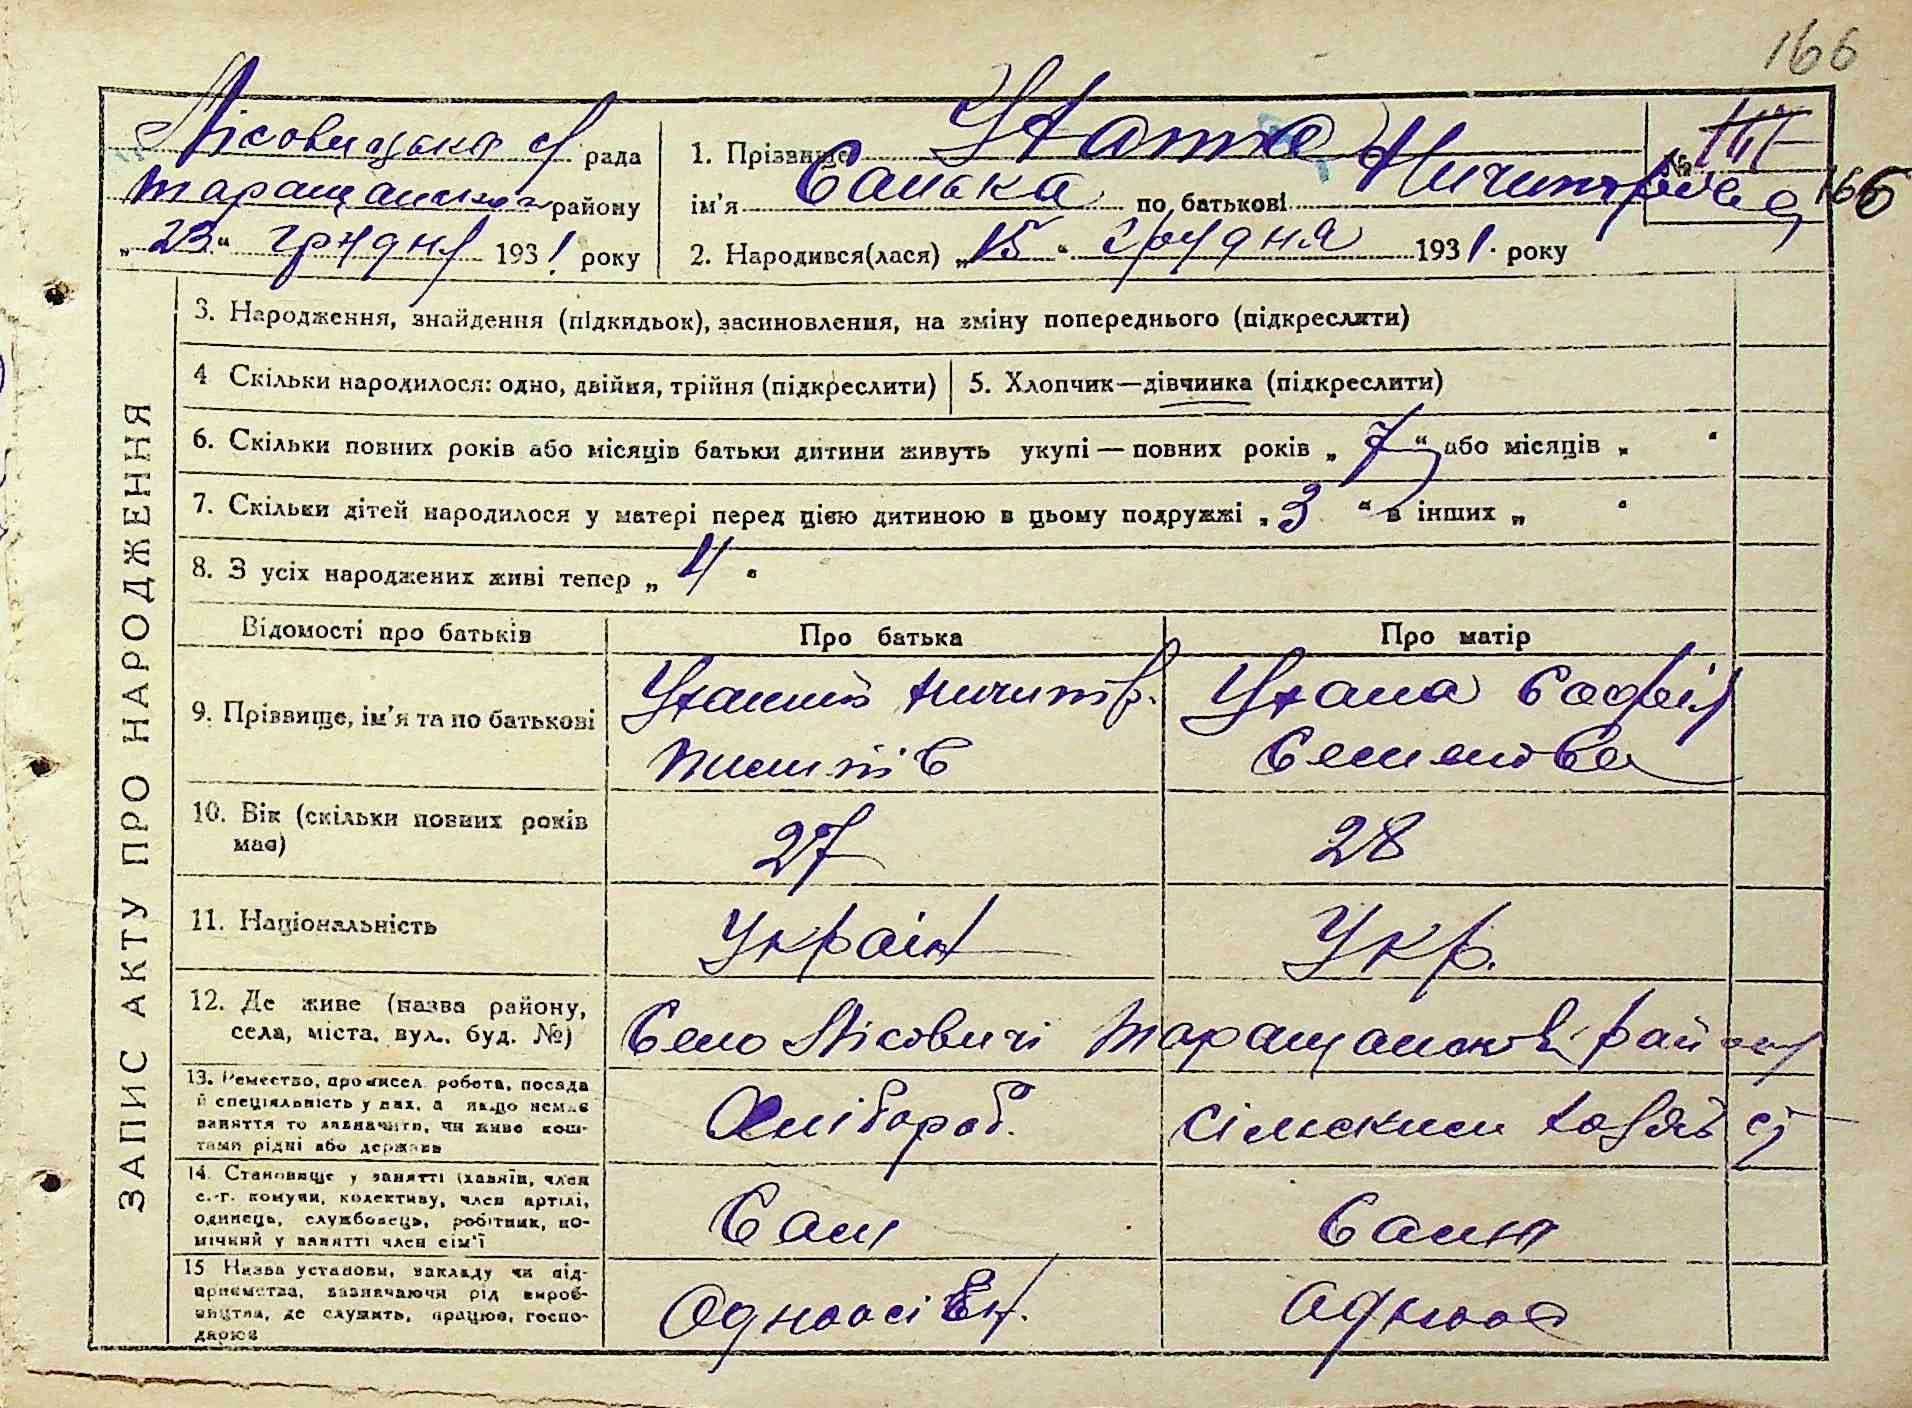 166
Лісовицька с/ рада
Таращанськ району
„23“ грудня 1931 року
1. Прізвище
ім'я Санька по батькові Ничипорова
№ 166
2. Народився(лася) „15“ грудня 1931. року
ЗАПИС АКТУ ПРО НАРОДЖЕННЯ
3. Народження, знайдення (підкидьок), засиновлення, на зміну попереднього (підкреслити)
4 Скільки народилося: одно, двійня, трійня (підкреслити)
5. Хлопчик—дівчинка (підкреслити)
6. Скільки повних років або місяців батьки дитини живуть укупі — повних років „7“ або місяців „ “
7. Скільки дітей народилося у матері перед цією дитиною в цьому подружжі „3“ в інших „ “
8. З усіх народжених живі тепер „4“
Відомості про батьків
Про батька
Про матір
9. Прізвище, ім'я та по батькові
Ничипір.
Софія
Семенова
10. Вік (скільки повних років має)
27
28
11. Національність
Україн
Укр.
12. Де живе (назва району, села, міста, вул., буд. №)
Село Лісовичі Таращанськ району
13. Ремество, промисел, робота, посада й спеціяльність у них, а якщо немає заняття то зазначити, чи живе коштами рідні або держави
Хлібороб.
сільським
14. Становище у занятті (хазяїн, член с.-г. комуни, колективу, член артілі, одинець, службовець, робітник, помічний у занятті член сім'ї
Сам
Сама
15 Назва установи, закладу чи підприємства, зазначаючи рід виробництва, де служить, працює, господарює
Одноосібн.
Одноос